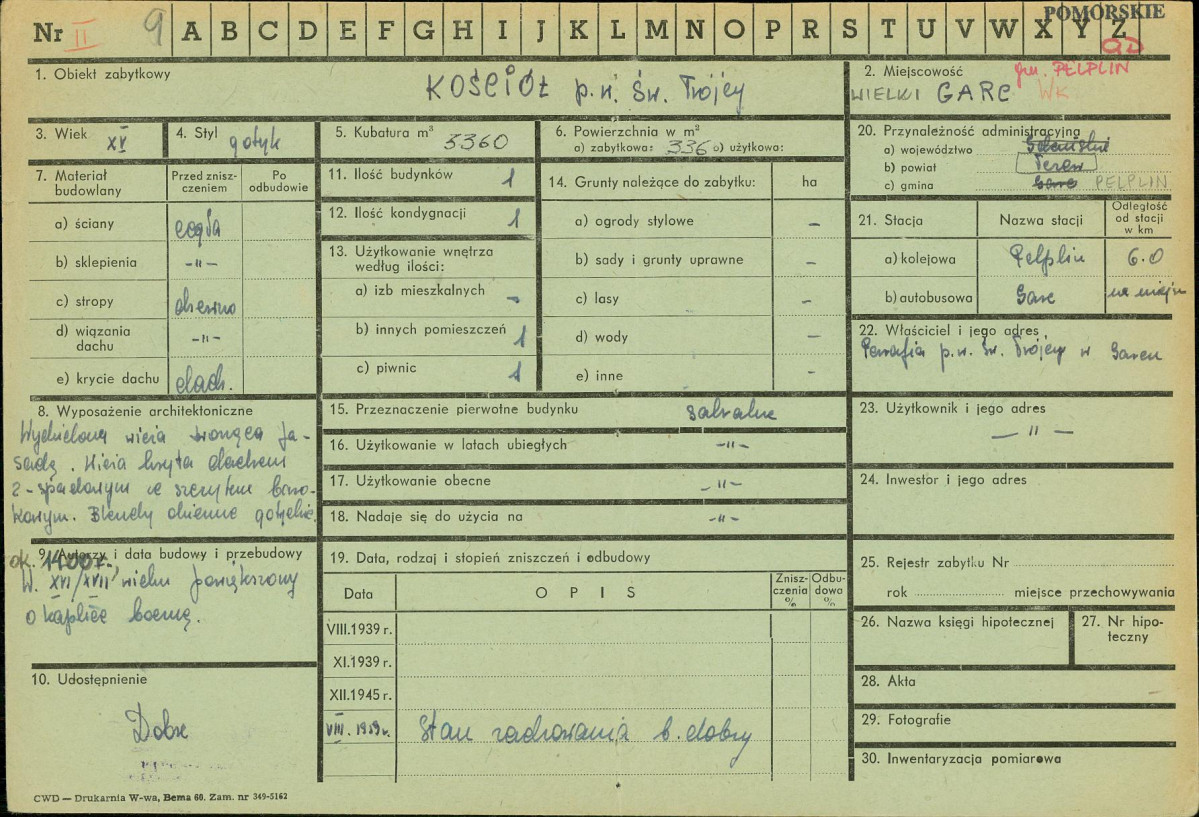 Nr II 9 A B C D E F G H I J K L M N O P R S T U V W X Y Z
POMORSKIE
1. Obiekt zabytkowy
KOŚCIÓŁ p.w. Św. Trójcy
2. Miejscowość
gm. PELPLIN
WIELKI GARC WK
3. Wiek
XV
4. Styl
gotyk
5. Kubatura m³
3360
6. Powierzchnia w m²
a) zabytkowa: 336 b) użytkowa:
20. Przynależność administracyjna
a) województwo Gdańskie
b) powiat Tczew
c) gmina Garc PELPLIN
7. Materiał budowlany
Przed zniszczeniem
Po odbudowie
a) ściany cegła
b) sklepienia -"-
c) stropy drewno
d) wiązania dachu -"-
e) krycie dachu dach.
11. Ilość budynków 1
12. Ilość kondygnacji 1
13. Użytkowanie wnętrza według ilości:
a) izb mieszkalnych -
b) innych pomieszczeń 1
c) piwnic 1
14. Grunty należące do zabytku: ha
a) ogrody stylowe -
b) sady i grunty uprawne -
c) lasy -
d) wody -
e) inne -
21. Stacja
Nazwa stacji
Odległość od stacji w km
a) kolejowa Pelplin 6.0
b) autobusowa Garc na miejscu
22. Właściciel i jego adres
Parafia p.w. Św. Trójcy w Garcu
8. Wyposażenie architektoniczne
Wydzielona wieża
sadą. Wieża kryta dachem
2-spadowym ze szczytem
Blendy okienne gotyckie.
15. Przeznaczenie pierwotne budynku sakralne
16. Użytkowanie w latach ubiegłych -"-
17. Użytkowanie obecne -"-
18. Nadaje się do użycia na -"-
23. Użytkownik i jego adres
- " -
24. Inwestor i jego adres
9. Autorzy i data budowy i przebudowy
ok. 1400r.,
W. XVI/XVII wieku powiększony
o kaplicę boczną.
19. Data, rodzaj i stopień zniszczeń i odbudowy
Data
OPIS
Zniszczenia %
Odbudowa %
VIII.1939 r.
XI.1939 r.
XII.1945 r.
VIII.1959r. Stan zachowania b. dobry
25. Rejestr zabytku Nr
rok miejsce przechowywania
26. Nazwa księgi hipotecznej
27. Nr hipoteczny
10. Udostępnienie
Dobre
28. Akta
29. Fotografie
30. Inwentaryzacja pomiarowa
CWD — Drukarnia W-wa, Bema 60. Zam. nr 349-5162